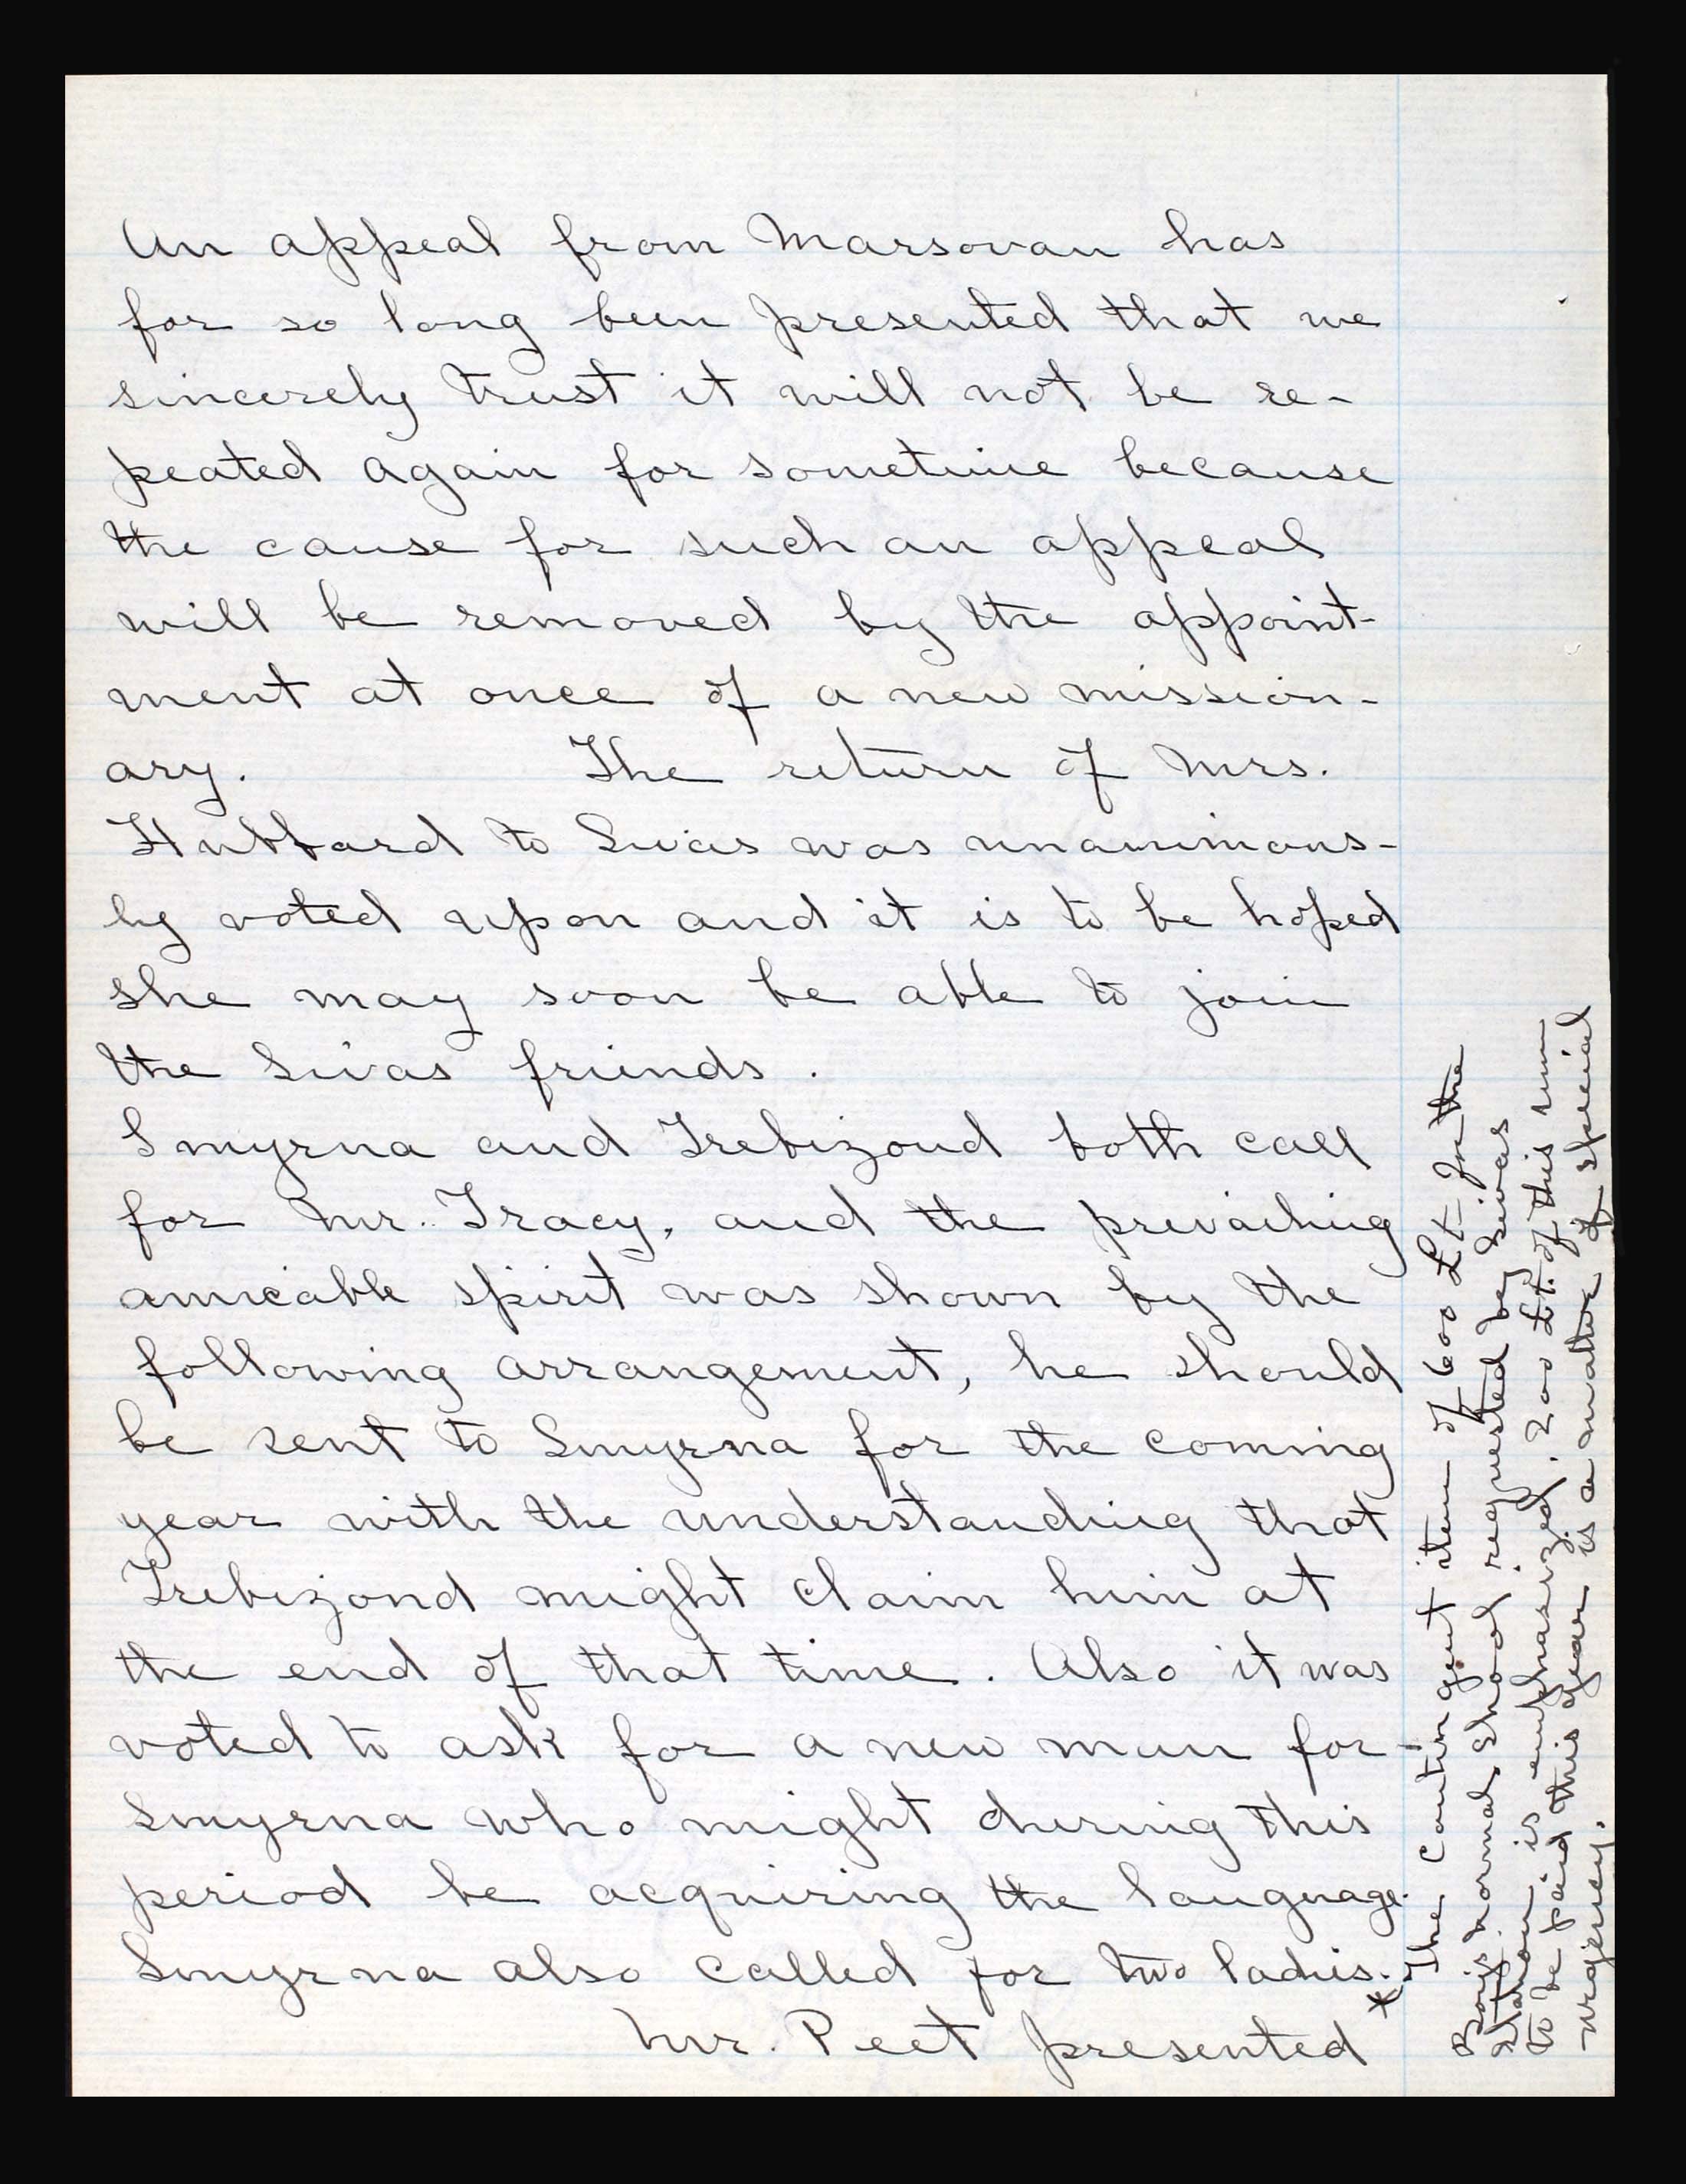 An appeal from Marsovan has
for so long been presented that we
sincerely trust it will not be re-
peated again for sometime because
the cause for such an appeal
will be removed by the appoint-
ment at once of a new mission-
ary. The return of Mrs.
Hubbard to Sivas was unanimous-
ly voted upon and it is to be hoped
she may soon be able to join
the Sivas friends.
Smyrna and Trebizond both call
for Mr. Tracy, and the prevailing
amicable spirit was shown by the
following arrangement, he should
be sent to Smyrna for the coming
year with the understanding that
Trebizond might claim him at
the end of that time. Also it was
voted to ask for a new man for
Smyrna who might during this
period be acquiring the language.
Smyrna also called for two ladies. x
Mr. Peet presented
x The contingent item of 600 Lt. for the
Boys' normal school requested by Sivas
station is emphasized. 200 Lt. of this sum
to be paid this year is a matter of special
urgency.